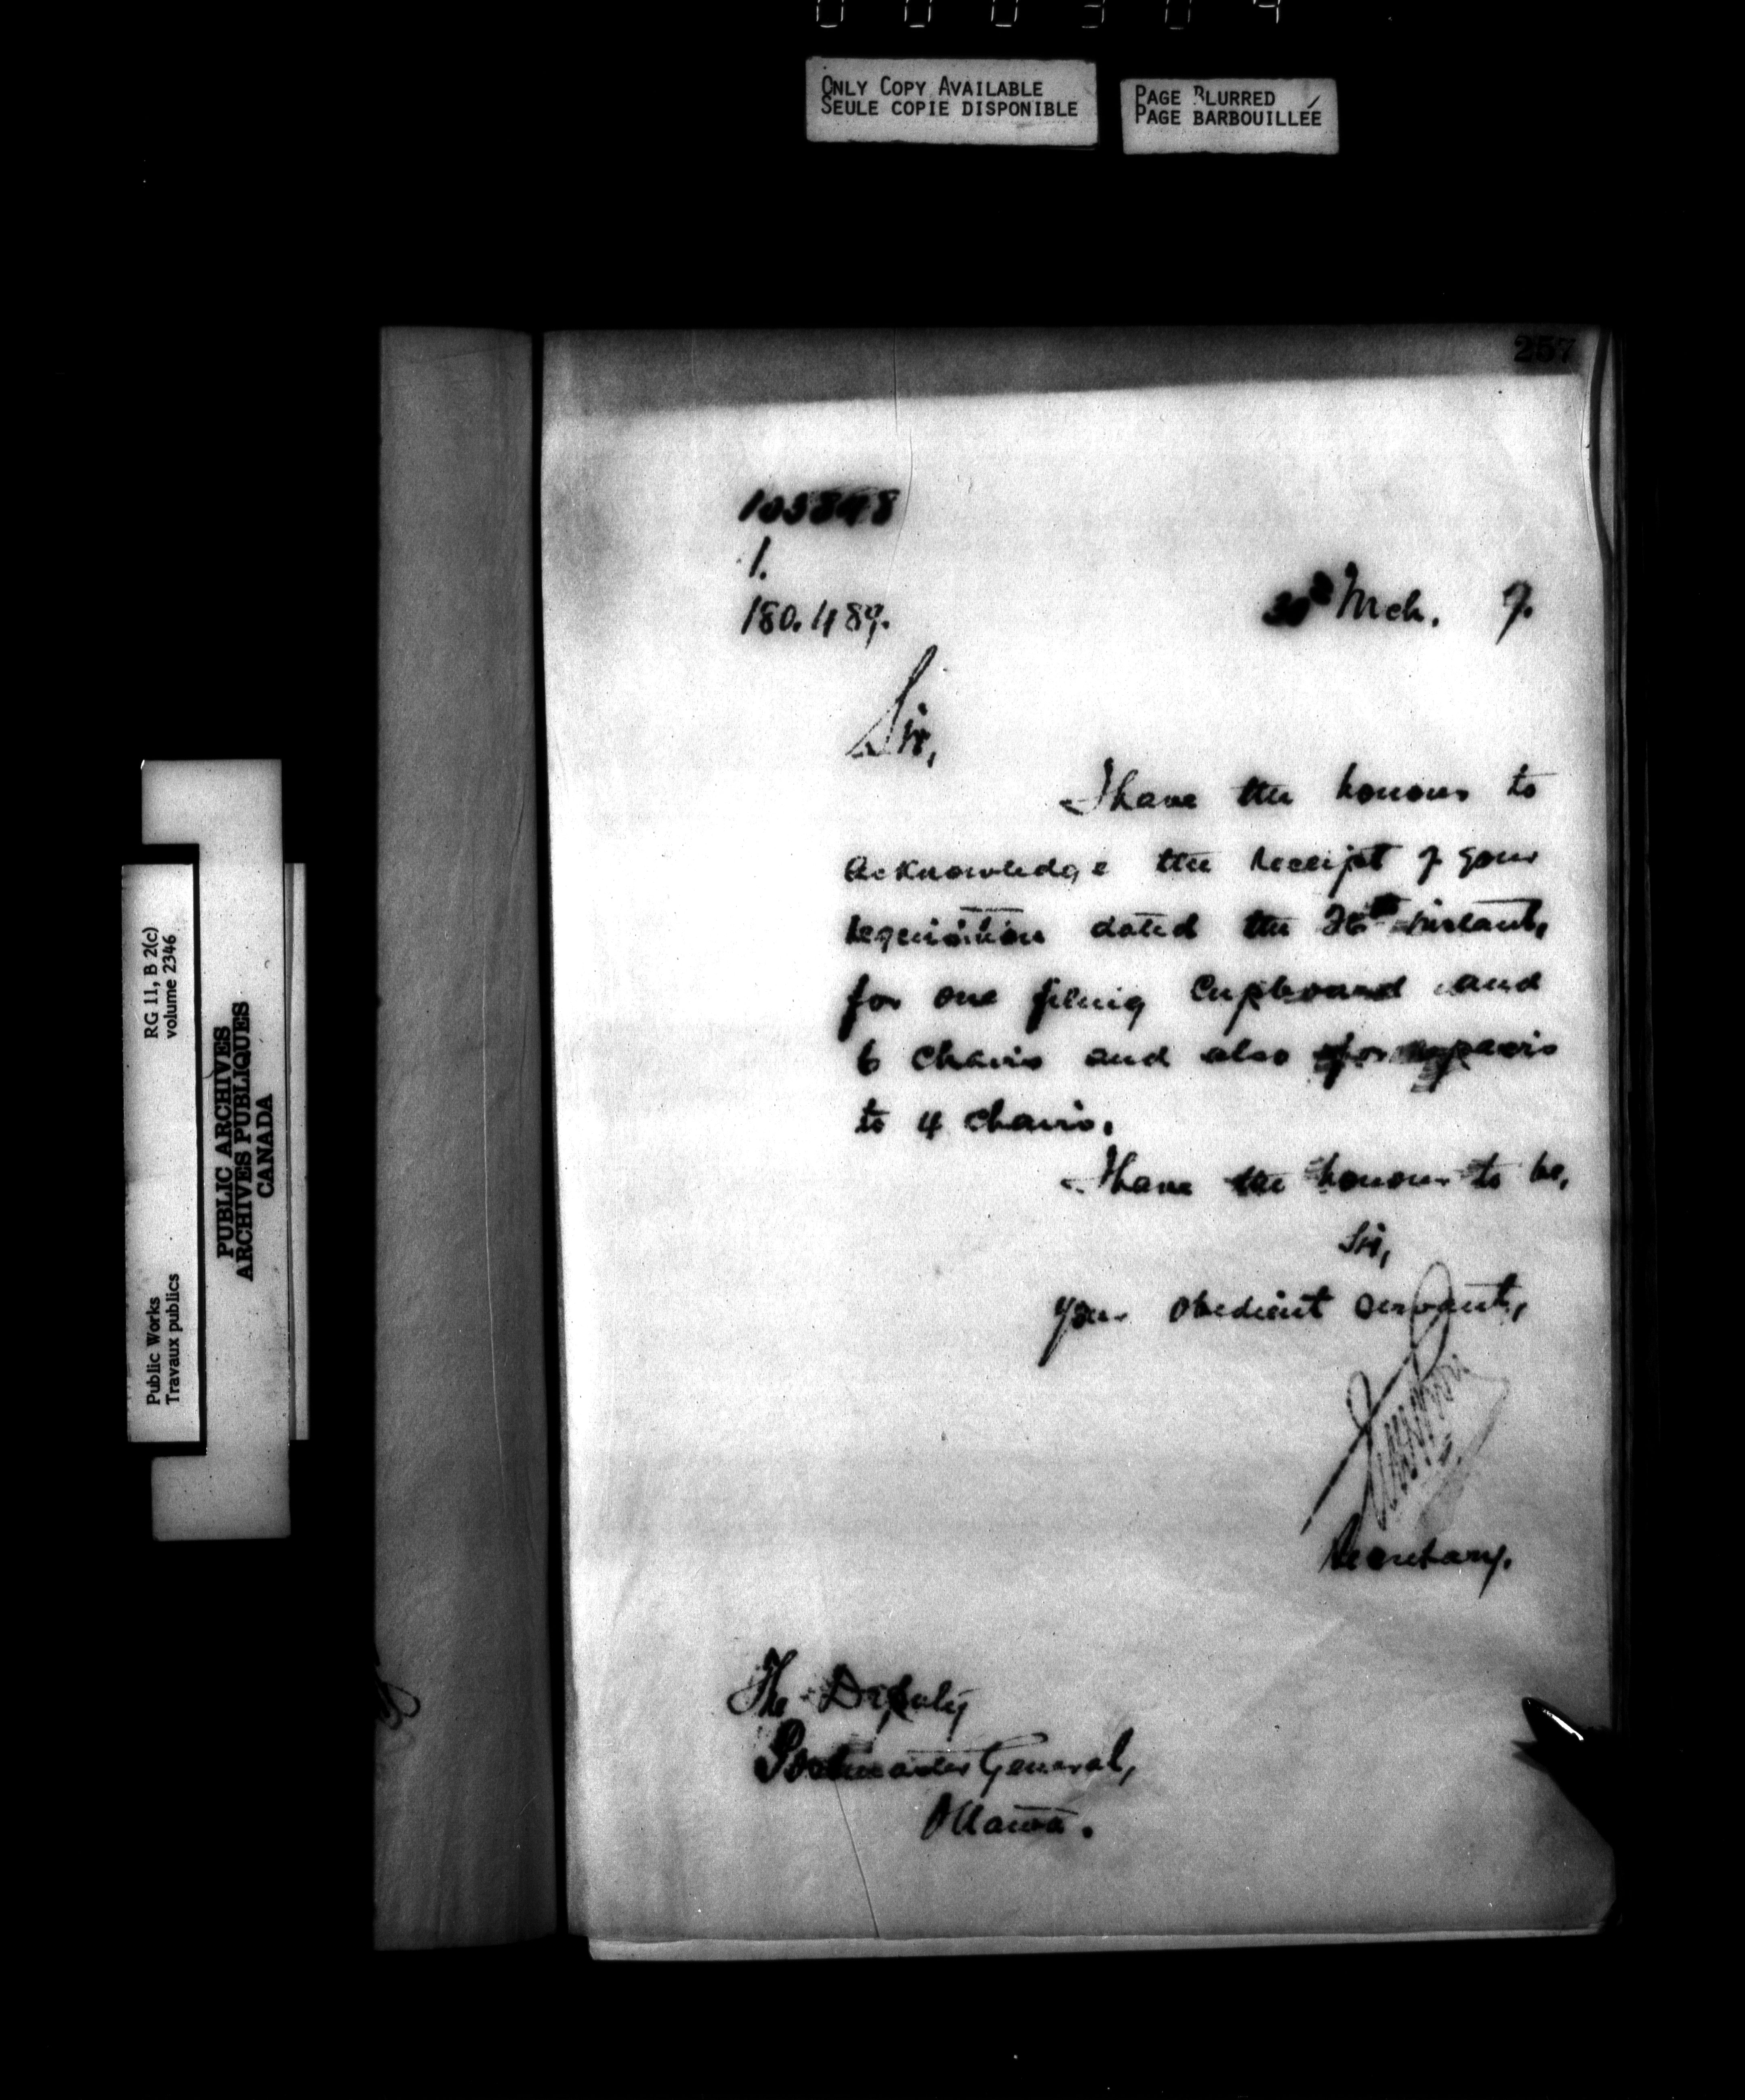 ONLY COPY AVAILABLE
SEULE COPIE DISPONIBLE
PAGE BLURRED
PAGE BARBOUILLÉE
257
1.
180.489.
Mch. 7.
Sir,
I have the honour to
acknowledge the receipt of your
requisition dated the instant,
for one filing Cupboard and
6 chairs and also for repairs
to 4 chairs.
I have the honour to be,
Sir,
Your obedient servant,
Secretary.
The Deputy
Postmaster General,
Ottawa.
RG 11, B 2(c)
volume 2346
Public Works
Travaux publics
PUBLIC ARCHIVES
ARCHIVES PUBLIQUES
CANADA